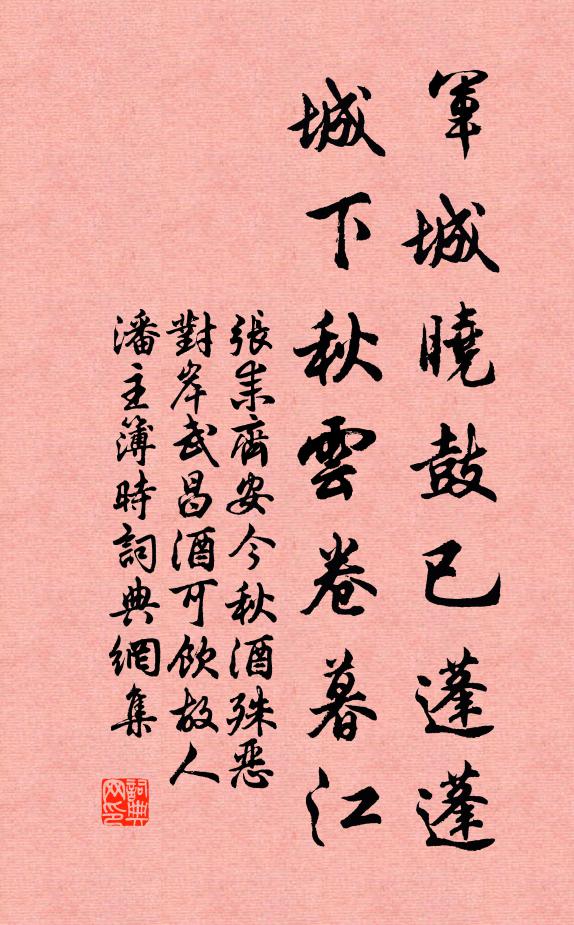 軍城曉鼓已蓬蓬
城下秋雲卷暮江
張耒齊安今秋酒殊惡
對岸武昌酒可飲故人
潘主簿時詞典網集
詞典網印